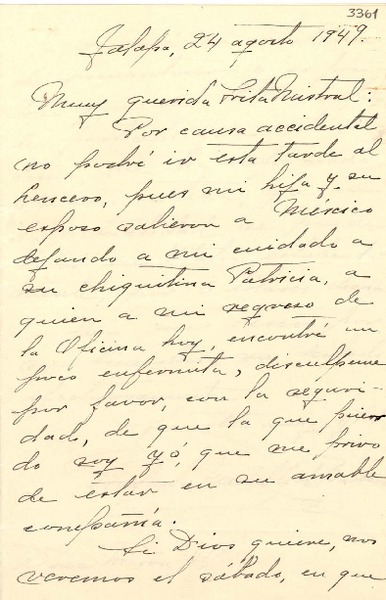 3361
Jalapa, 24 agosto 1949.
Muy querida Srita Mistral:
Por causa accidental
no podré ir esta tarde al
Lencero, pues mi hija y su
esposo salieron a México
dejando a mi cuidado a
su chiquitina Patricia, a
quien a mi regreso de
la Oficina hoy, encontré un
poco enfermita, disculpeme
por favor, con la seguri-
dad, de que la que pier-
do soy yó, que me privo
de estar en su amable
compañía.
Si Dios quiere, nos
veremos el sábado, en que